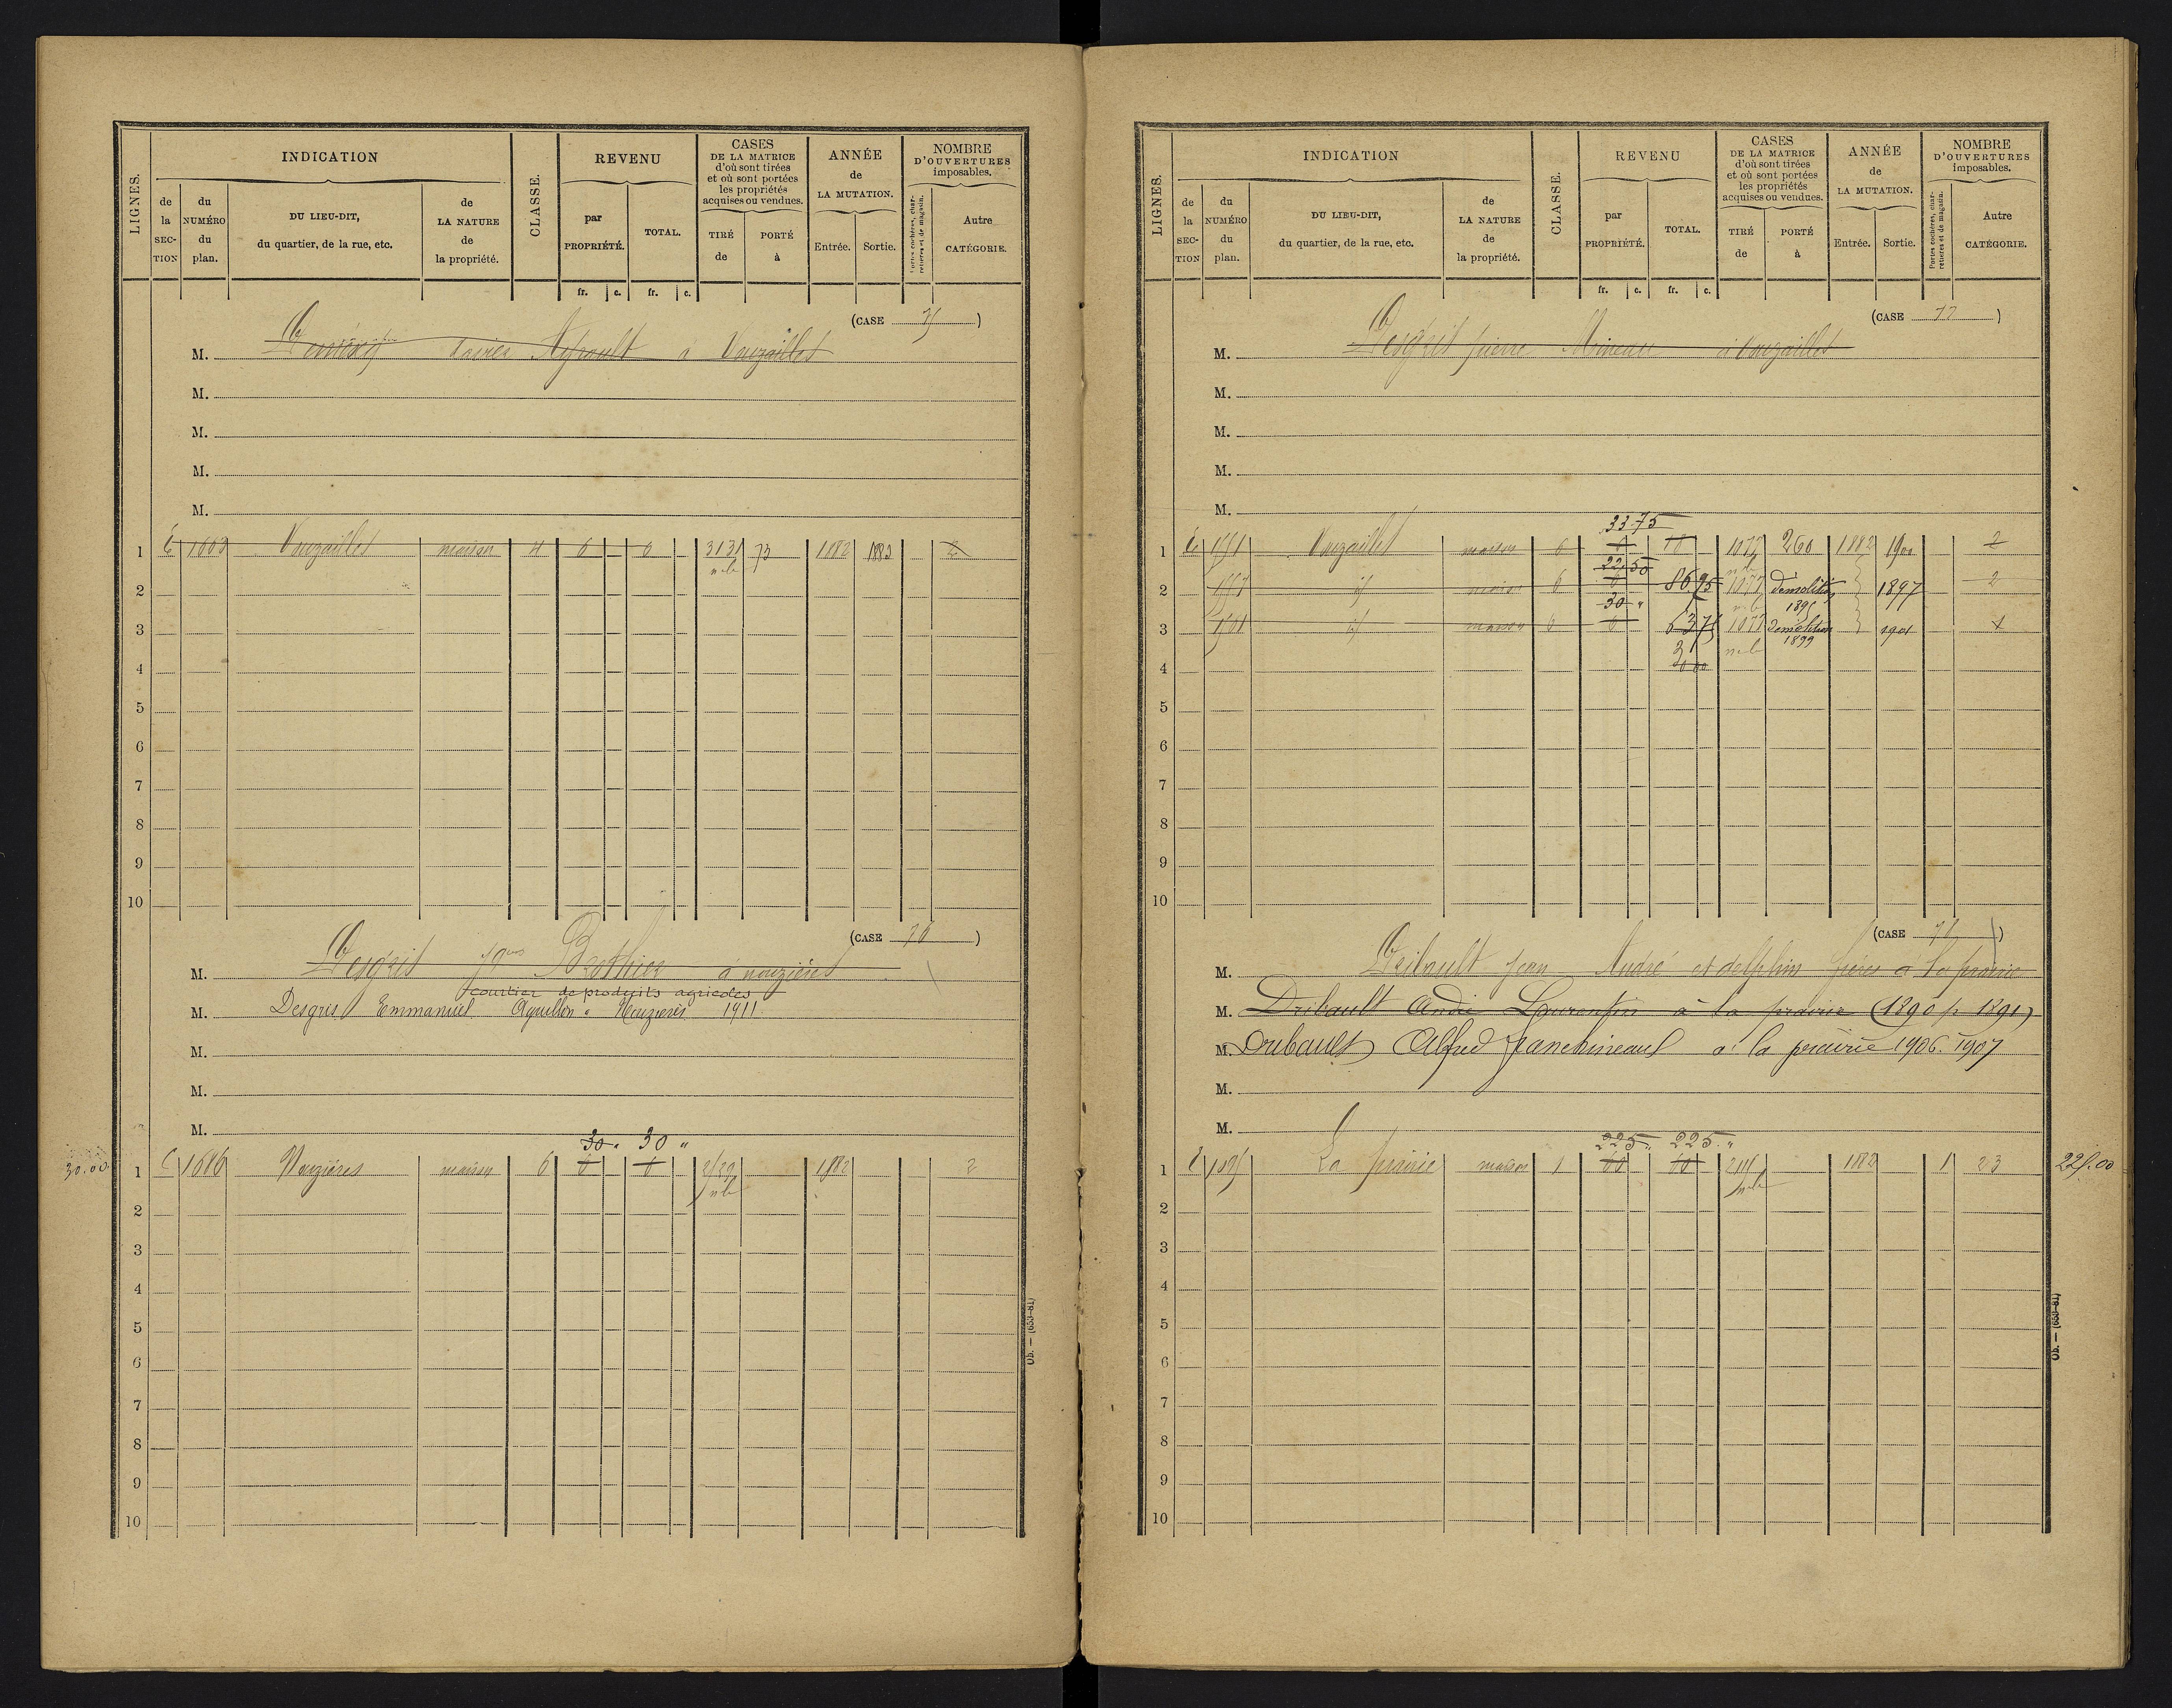 LIGNES.
INDICATION
de la SECTION
du NUMÉRO du plan.
DU LIEU-DIT, du quartier, de la rue, etc.
de LA NATURE de la propriété.
CLASSE.
REVENU
par PROPRIÉTÉ.
TOTAL.
CASES DE LA MATRICE d'où sont tirées et où sont portées les propriétés acquises ou vendues.
TIRÉ de
PORTÉ à
ANNÉE de LA MUTATION.
Entrée.
Sortie.
NOMBRE D'OUVERTURES imposables.
Portes cochères, charretières et de magasin.
Autre CATÉGORIE.
fr. c. fr. c.
(CASE 75)
M. à Vouzailles
M.
M.
M.
M.
1 1603 Vouzailles maison 4 6 6 3131 73 1882 1883 2
n.b.
2
3
4
5
6
7
8
9
10
(CASE 76)
M. Desgris Brothier à nouzières
courtier de produits agricoles
M. Desgris Emmanuel Aguillon à Nouzières 1911
M.
M.
M.
30 " 30 "
30.00 1 1686 Nouzières maison 6 6 6 2129 1882 2
n.b
2
3
4
5
6
7
8
9
10
Ob. — (659-81)
LIGNES.
INDICATION
de la SECTION
du NUMÉRO du plan.
DU LIEU-DIT, du quartier, de la rue, etc.
de LA NATURE de la propriété.
CLASSE.
REVENU
par PROPRIÉTÉ.
TOTAL.
CASES DE LA MATRICE d'où sont tirées et où sont portées les propriétés acquises ou vendues.
TIRÉ de
PORTÉ à
ANNÉE de LA MUTATION.
Entrée.
Sortie.
NOMBRE D'OUVERTURES imposables.
Portes cochères, charretières et de magasin.
Autre CATÉGORIE.
fr. c. fr. c.
(CASE 77)
M. Desgris pierre à Vouzailles
M.
M.
M.
M.
33.75
1 Vouzailles maison 6 6 18 1077 260 1882 1900 2
22.50 n.b
2 id maison 6 6 86.25 1077 démolition 1897 2
30 " n.b
3 id maison 6 6 63.75 1077 Démolition 1901 1
1899
n.b
4 30.00
5
6
7
8
9
10
(CASE 78)
M. Dribault Jean André et delphin frères à la prairie
M. Dribault André Laurentin à la prairie (1890 p. 1891)
M. Dribault Alfred Franchineau à la prairie 1906. 1907
M.
M.
225 " 225 "
1 La prairie maison 1 60 60 1882 1 23 225.00
n.b
2
3
4
5
6
7
8
9
10
Ob. — (659-81)